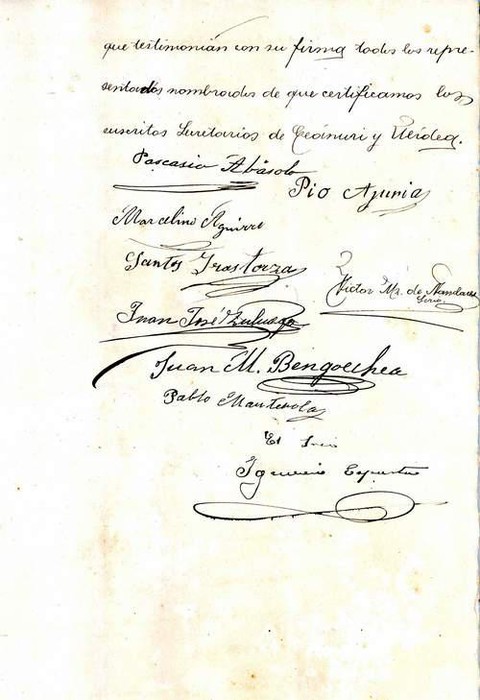 que testimonian con su firma todos los repre-
sentados nombrados de que certificamos los
suscritos Secretarios de Ceánuri y Ubidea.
Pascasio Abásolo
Pio Azunia
Marcelino Aguirre
Santos Irastorza
Victor Mz. de
Srio.
Juan José Zuluaga
Juan M. Bengoechea
Pablo Manterola
El Srio
Ignacio